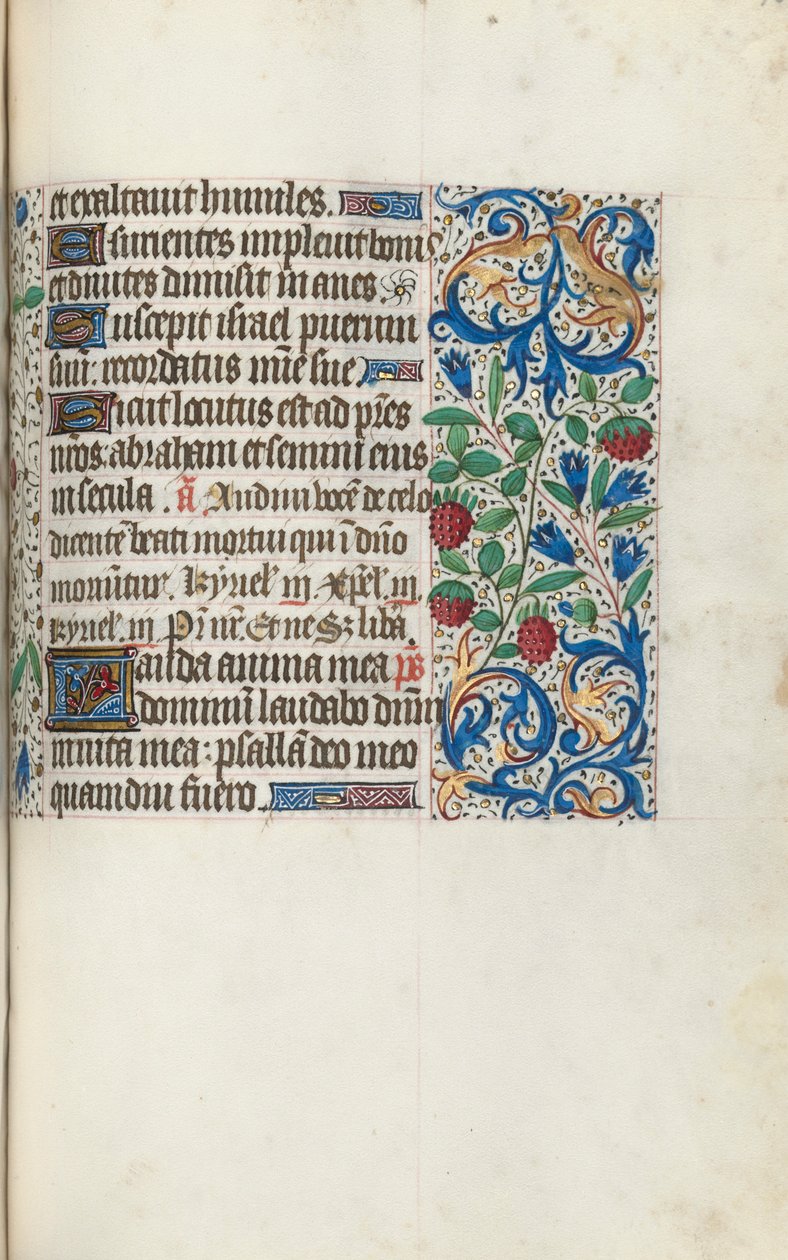 et exaltauit humiles.
Esurientes impleuit bonis
et diuites dimisit in anes
Suscepit israel puerum
suũ: recordatus mĩe sue
Sicut locutus est ad p̃res
nr̃os: abraham et semini eius
in secula. ã Audiui vocẽ de celo
dicentẽ beati mortui qui ĩ dño
moriũtur. kyriel̃ iij. xp̃el̃. iij.
kyriel̃. iij P̃r nr̃. Et ne Sz liba.
Lauda anima mea p̃s
dominũ laudabo dñm
in uita mea: psallã deo meo
quamdiu fuero.